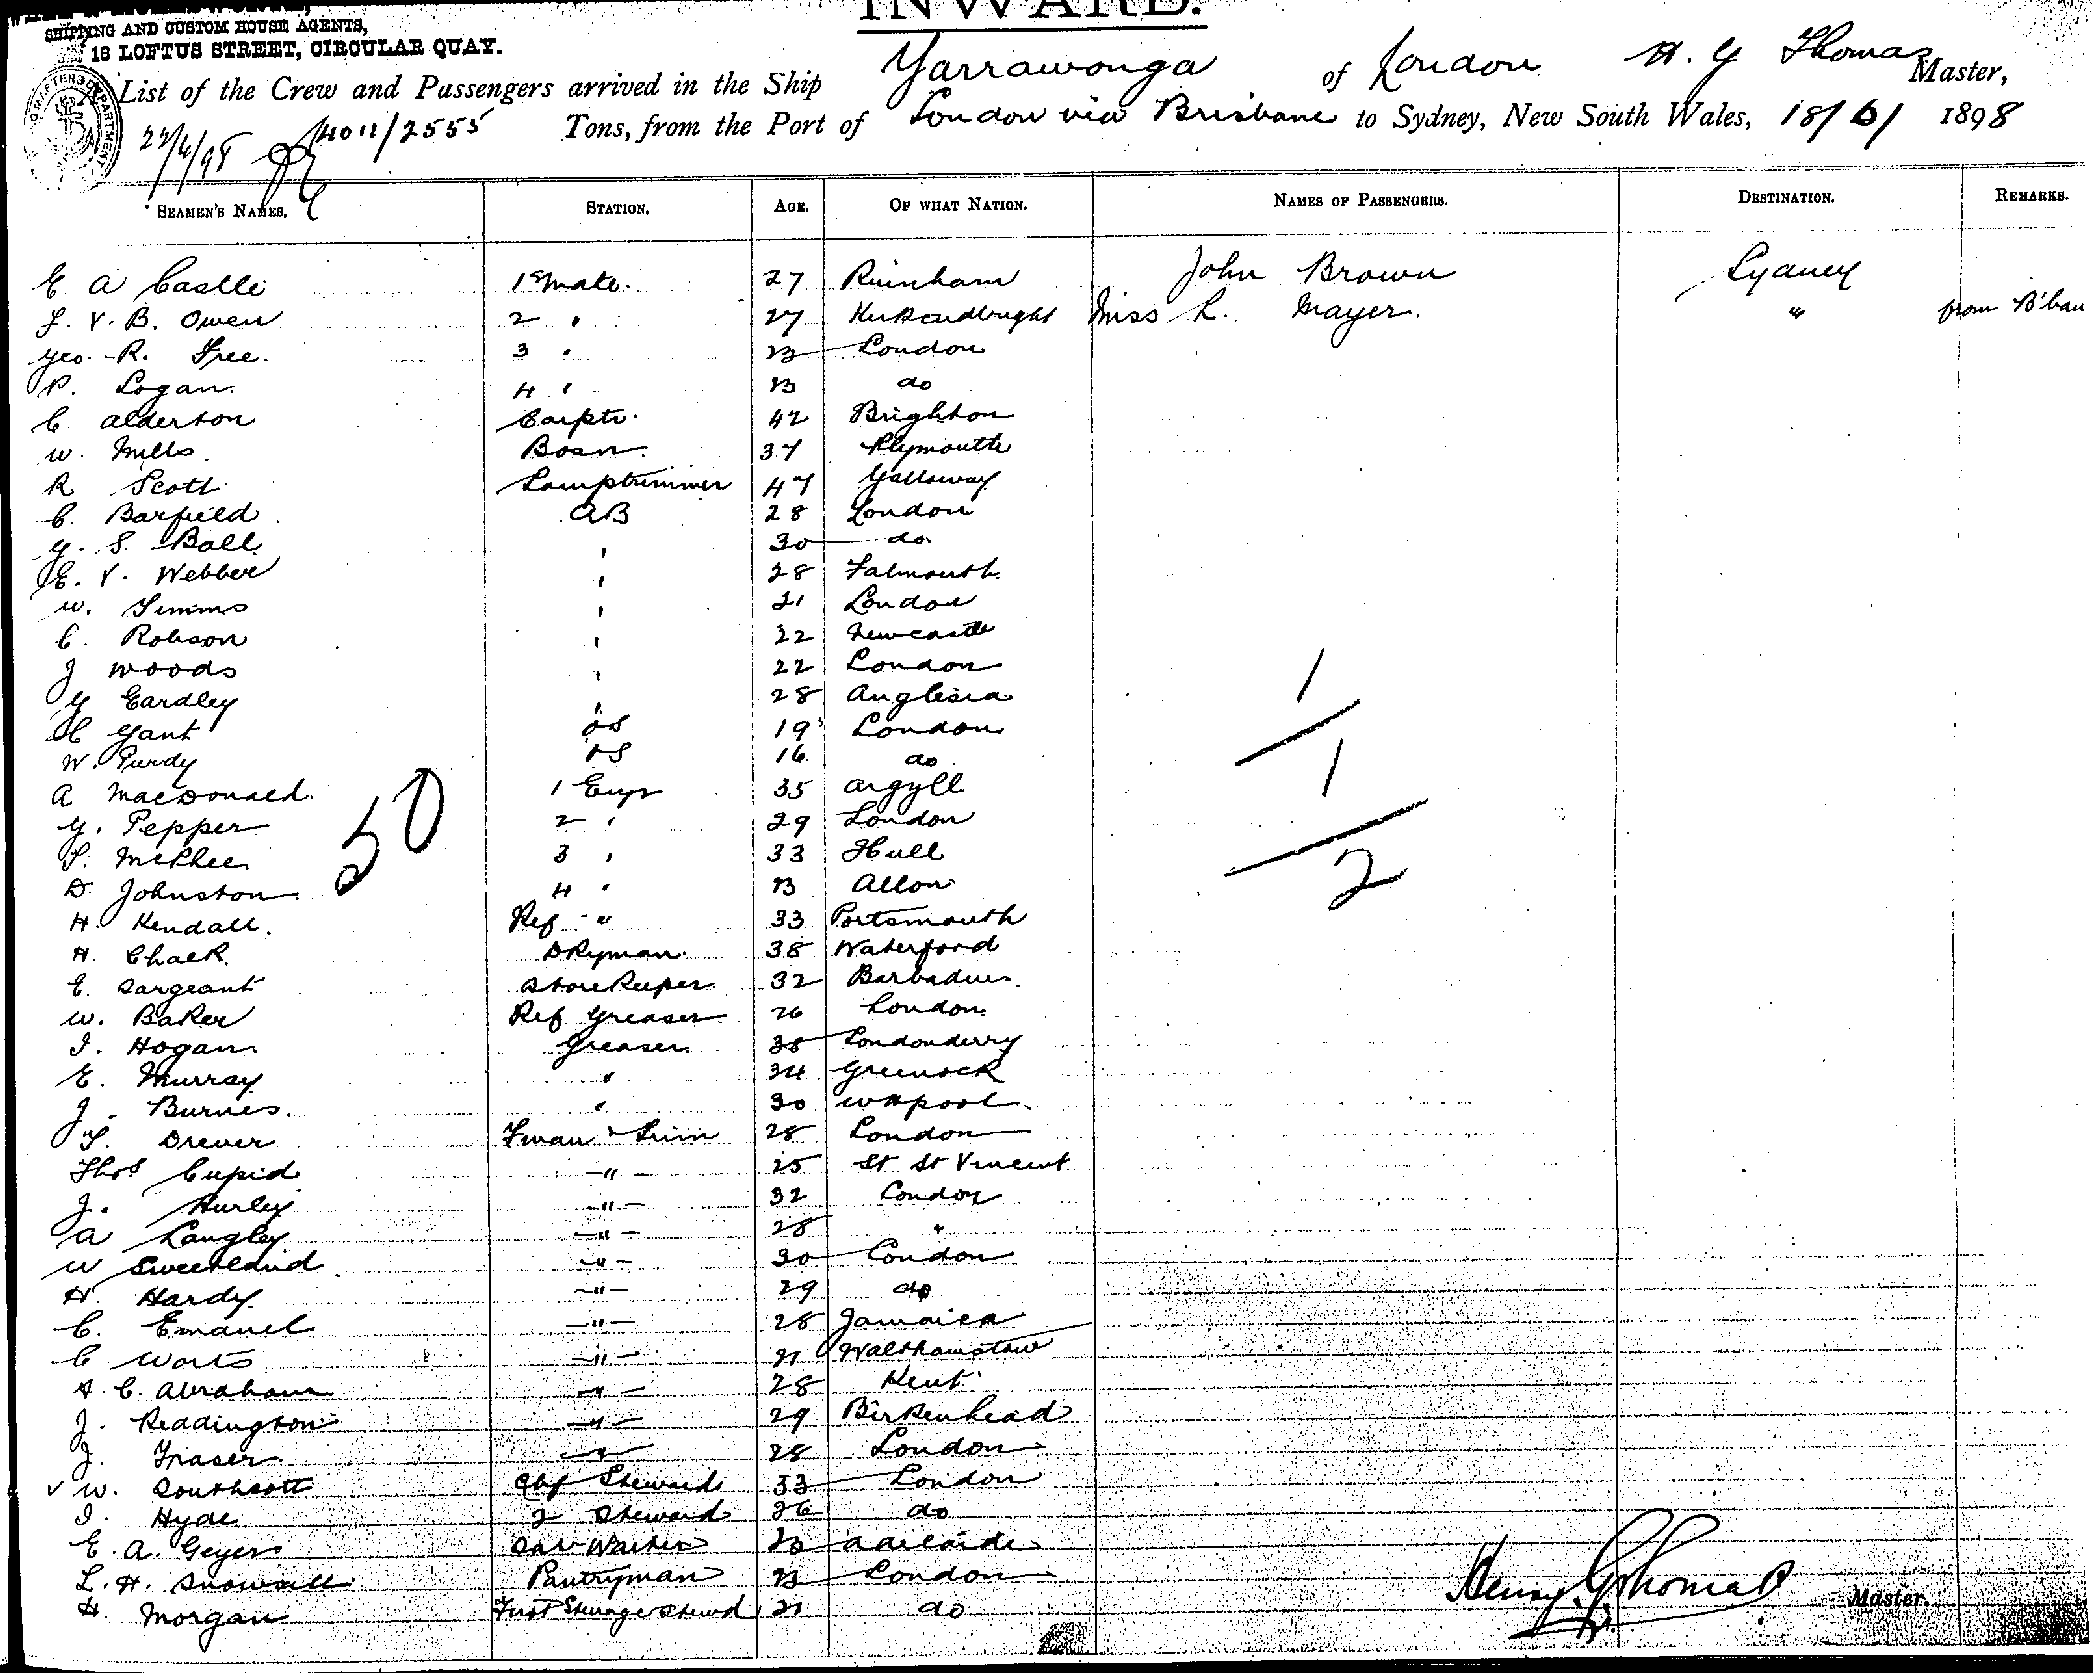 INWARD.
SHIPPING AND CUSTOM HOUSE AGENTS,
18 LOFTUS STREET, CIRCULAR QUAY.
List of the Crew and Passengers arrived in the Ship Yarrawonga of London H. G Thomas Master,
22/6/98 4011/2555 Tons, from the Port of London via Brisbane to Sydney, New South Wales, 18/6/ 1898
SEAMEN'S NAMES. STATION. AGE. OF WHAT NATION. NAMES OF PASSENGERS. DESTINATION. REMARKS.
E A Castle 1 Mate 27 Rainham John Brown Sydney
F. V. B. Owen 2 " 27 Kirkcudbright Miss L. Mayer. " from B'ban
Geo. R. Free. 3 " 23 London
P. Logan. 4 " 23 do
C Alderton Carptr. 42 Brighton
W. Mills. Bosn. 37 Plymouth
R Scott Lamptrimmer 47 Galloway
C. Barfield AB 28 London
G. S. Ball " 30 do
E. V. Webber " 28 Falmouth
W. Simms " 21 London
C. Robson " 22 Newcastle
J Woods " 22 London 1
G Eardley " 28 Anglesia
C Gant OS 19 London
W. Purdy OS 16 do 1
A MacDonald 1 Engr 35 Argyll
G. Pepper 50 2 " 29 London
S. McPhee 3 " 33 Hull 2
D. Johnston 4 " 23 Alloa
H. Kendall. Ref " 33 Portsmouth
H. Chalk DKyman 38 Waterford
E. Sargeant Storekeeper 32 Barbadoes
W. Baker Ref Greaser 26 London
J. Hogan Greaser 38 Londonderry
E. Murray " 34 Greenock
J. Burnes. " 30 W H pool
S. Drever Fman & Trim 28 London
Thos Cupid " 25 St St Vincent
J. Hurley " 32 London
A Langley " 28 "
W Sweetland " 30 London
H. Hardy " 29 do
C. Emanuel " 28 Jamaica
C Worts " 21 Walthamstow
A. C. Abraham " 28 Kent
J. Reddington " 29 Birkenhead
J. Fraser " 28 London
W. Southcott Chf Steward 33 London
J. Hyde 2 Steward 26 do
E. A. Geyer 20 Adelaide
L. H. Snowsill Pantryman 23 London
H. Morgan First Steerage Stewd 21 do
Henry G Thomas Master.